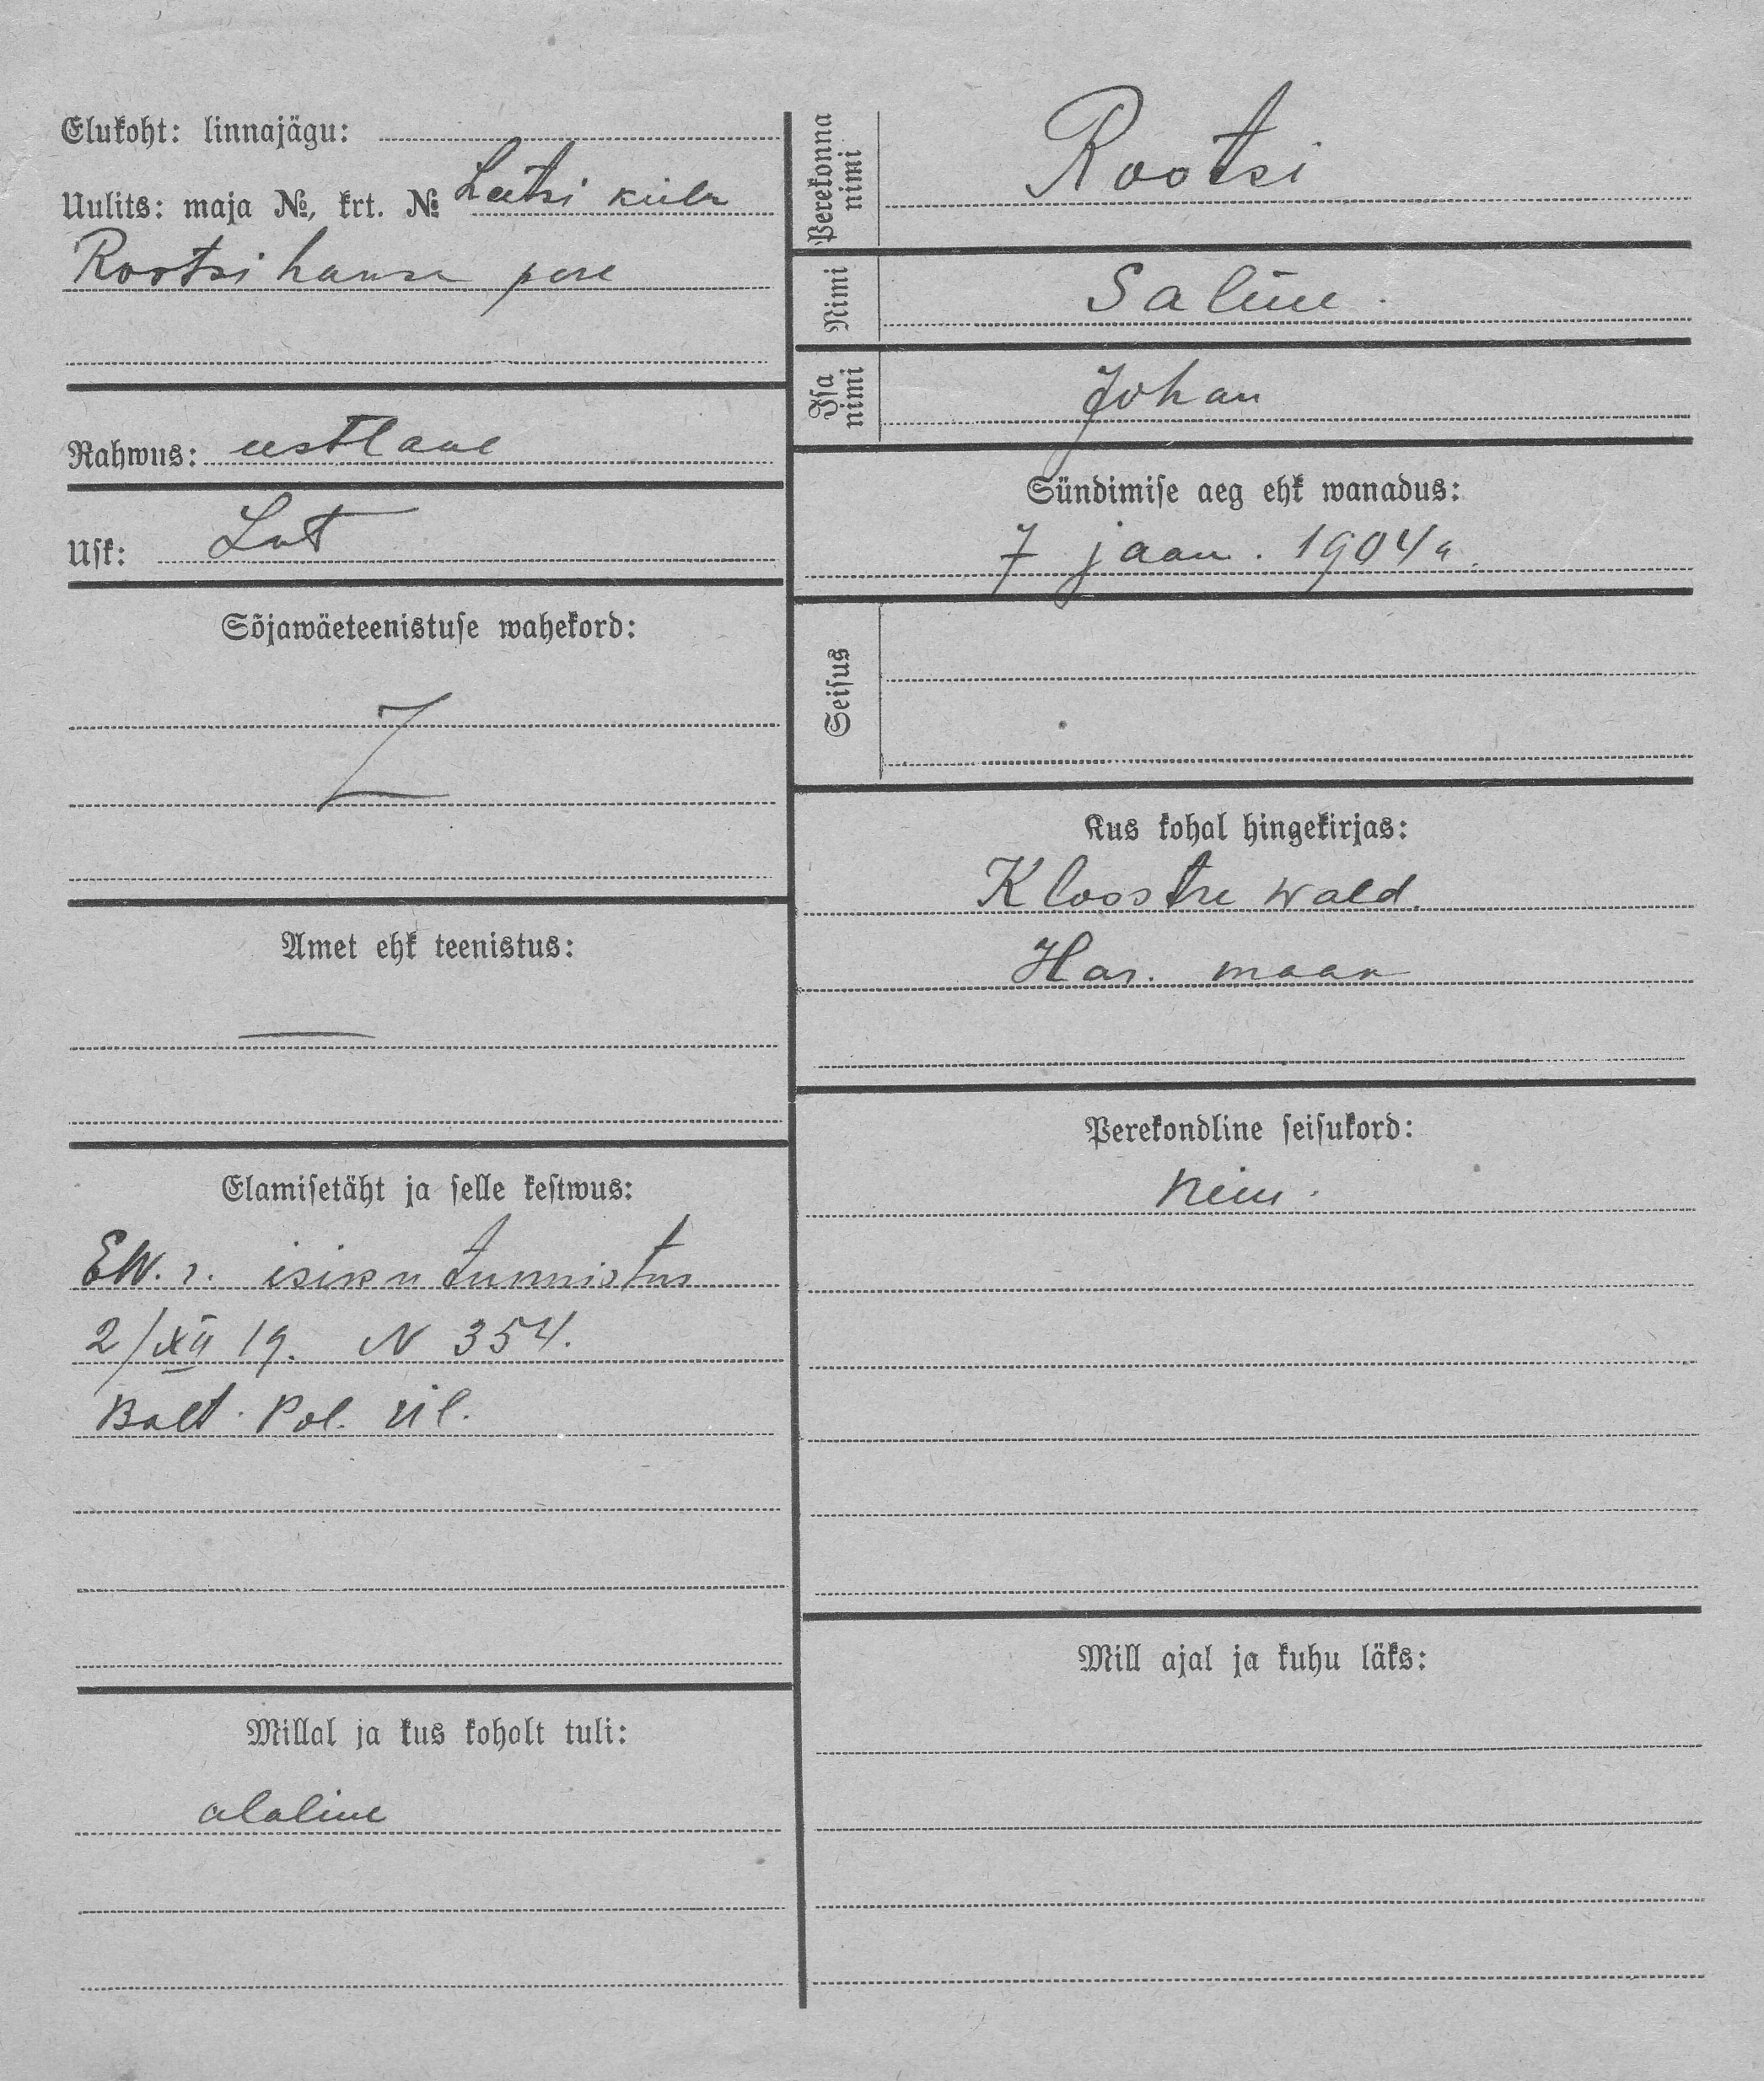 Elukoht: linnajägu:
Uulits: maja №, krt. № Leetsi küla
Rootsi hansu pere
Rahwus: eestlane
Usk: Lut
Sõjawäeteenistuse wahekord:
Amet ehk teenistus:
—
Elamisetäht ja selle kestwus:
EW. r. isiku tunnistus
2/XII 19. N 354.
Balt. Pol. ül.
Millal ja kus kohalt tuli:
alaline
Perekonna nimi
Rootsi
Nimi
Saline.
Isa nimi
Johan
Sündimise aeg ehk wanadus:
7 jaan. 1904 a.
Seisus
Kus kohal hingekirjas:
Kloostre wald.
Har. maak
Perekondline seisukord:
Neiu.
Mill ajal ja kuhu läks: